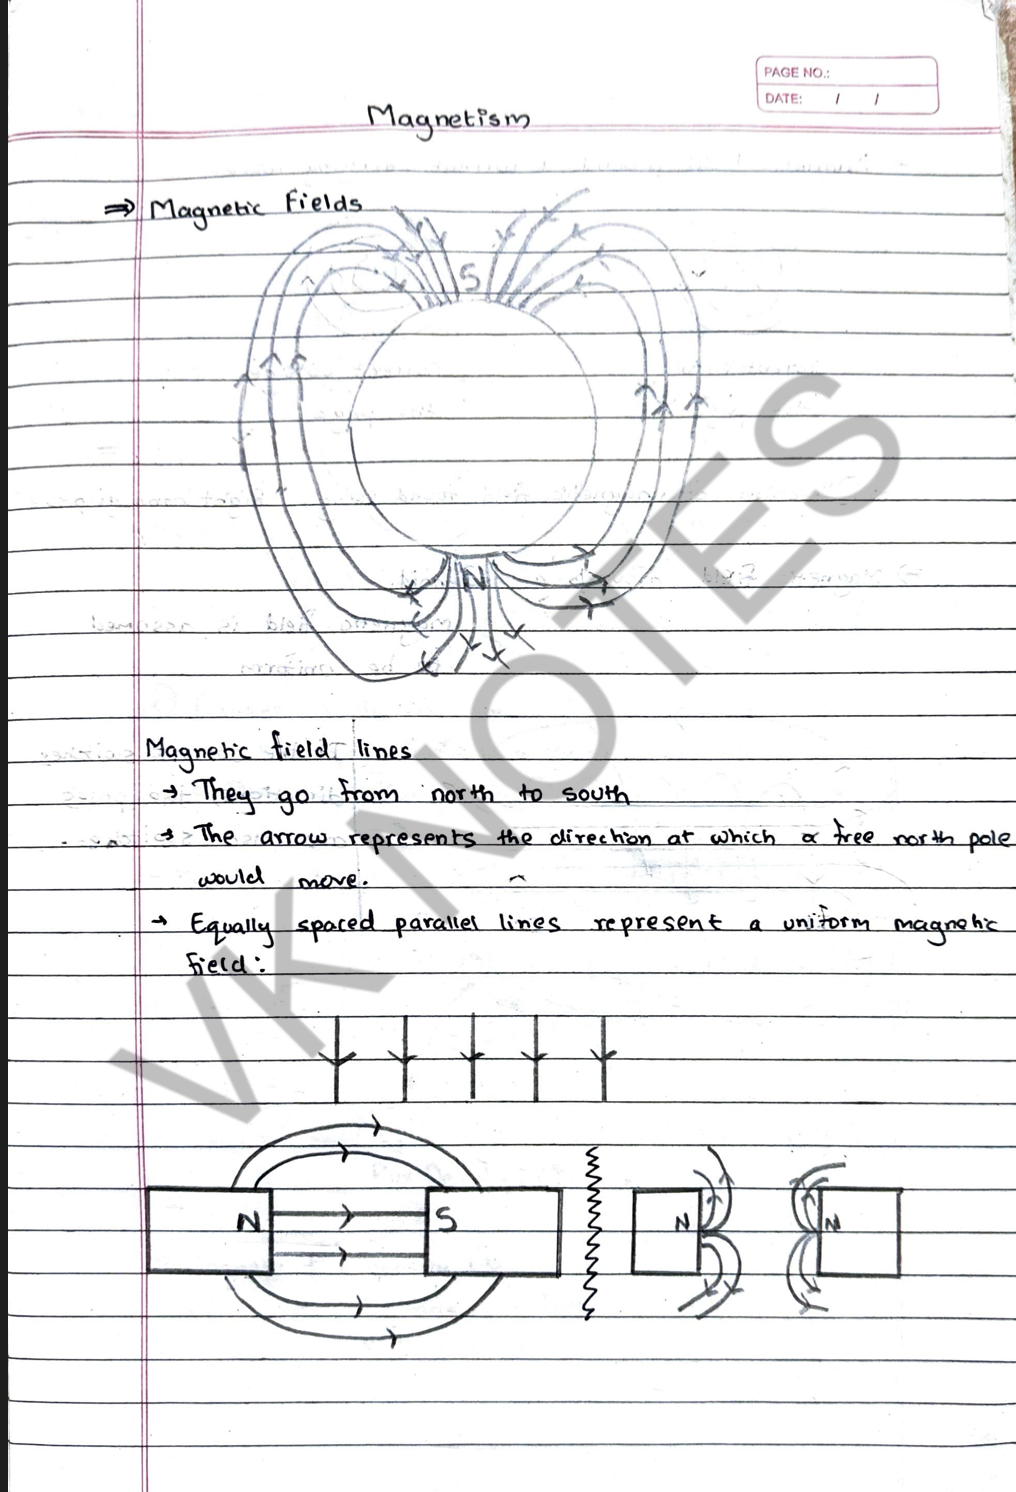 PAGE NO.:
DATE: / /
Magnetism
⇒ Magnetic Fields
S
N
Magnetic field lines
→ They go from north to south
→ The arrow represents the direction at which a free north pole
would move.
→ Equally spaced parallel lines represent a uniform magnetic
field:
N S N N
VKNOTES